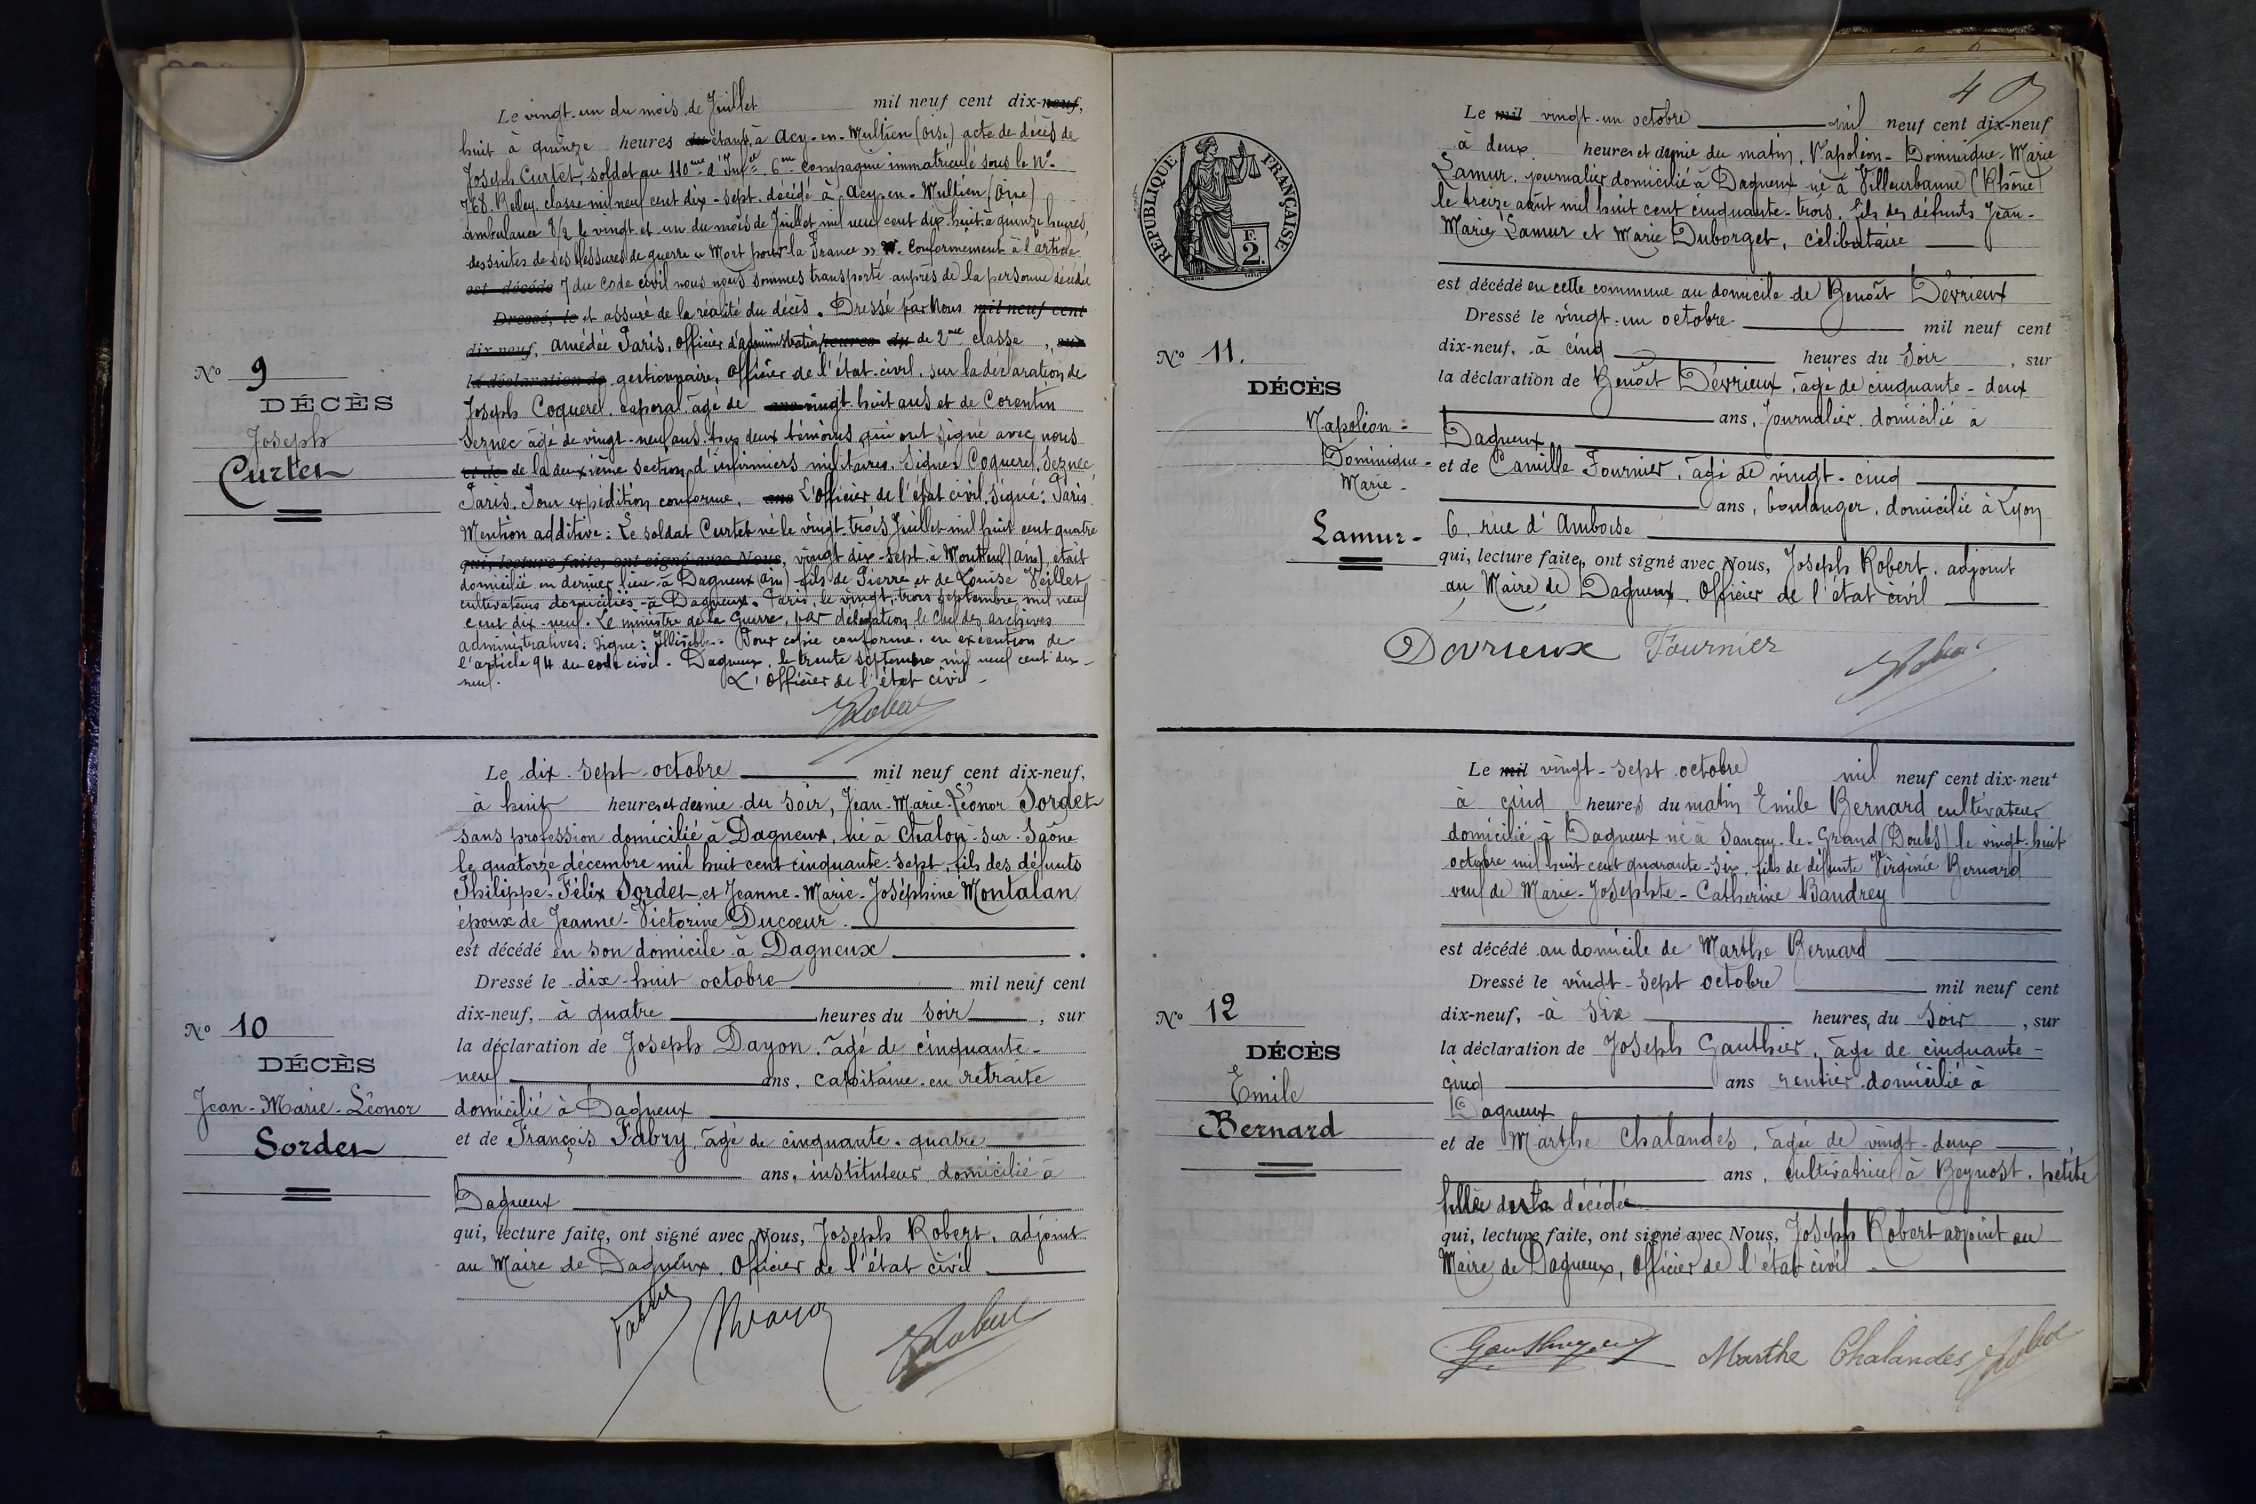 Le vingt-un du mois de Juillet mil neuf cent dix-neuf,
huit à quinze heures du étant à Acy-en-Multien (Oise) acte de décès de
Joseph Curtet, soldat au 110me d'Infie 6me Compagnie immatriculé sous le No
768 Belley classe mil neuf cent dix-sept. décédé à Acy-en-Multien (Oise)
ambulance 8/2 le vingt et un du mois de Juillet mil neuf cent dix-huit à quinze heures,
des suites de ses blessures de guerre « Mort pour la France » Conformement à l'article
est décédé 7 du code civil nous nous sommes transporté auprès de la personne décédée
Dressé, le et assuré de la réalité du décès. Dressé par Nous mil neuf cent
dix-neuf, Amédée Paris, Officier d'administration heures du de 2me classe, sur
la déclaration de gestionnaire, Officier de l'état-civil, sur la déclaration de
Joseph Coquerel, caporal, âgé de ans vingt huit ans et de Corentin
Seznec âgé de vingt-neuf ans, tous deux témoins qui ont signé avec nous
et de de la deuxième section d'infirmiers militaires. Signé: Coquerel, Seznec,
Paris. Pour expédition conforme. ans L'Officier de l'état civil. Signé: Paris
Mention additive: Le soldat Curtet né le vingt-trois Juillet mil huit cent quatre
qui, lecture faite, ont signé avec Nous, vingt dix-sept à Montluel (Ain), était
domicilié en dernier lieu à Dagneux (Ain) fils de Pierre et de Louise Veillet
cultivateurs domiciliés à Dagneux. Paris, le vingt-trois septembre mil neuf
cent dix-neuf. Le ministre de la Guerre, par délégation le Chef des archives
administratives: Signé: Illisible. Pour copie conforme, en execution de
l'article 94 du code civil. Dagneux, le trente septembre mil neuf cent dix-
neuf.
L'Officier de l'état civil
JRobert
No 9
DÉCÈS
Joseph
Curtet
Le dix-sept octobre mil neuf cent dix-neuf,
à huit heures et demie du soir, Jean-Marie-Léonor Sordet
sans profession domicilié à Dagneux, né à Chalon-sur-Saône
le quatorze décembre mil huit cent cinquante-sept, fils des défunts
Philippe-Félix Sordet et Jeanne-Marie-Joséphine Montalan
époux de Jeanne-Victorine Ducœur.
est décédé en son domicile à Dagneux
Dressé le dix-huit octobre mil neuf cent
dix-neuf, à quatre heures du soir, sur
la déclaration de Joseph Dayon, âgé de cinquante-
neuf ans, capitaine en retraite
domicilié à Dagneux
et de François Fabry, âgé de cinquante-quatre
ans, instituteur, domicilié à
Dagneux
qui, lecture faite, ont signé avec Nous, Joseph Robert, adjoint
au Maire de Dagneux. Officier de l'état civil
JRobert
No 10
DÉCÈS
Jean-Marie-Léonor
Sordet
40
RÉPUBLIQUE FRANÇAISE
F.
2.
Le mil vingt-un octobre mil neuf cent dix-neuf
à deux heures et demie du matin, Napoléon-Dominique-Marie
Lamur, journalier domicilié à Dagneux né à Villeurbanne (Rhône)
le treize août mil huit cent cinquante-trois, fils des défunts Jean-
Marie Lamur et Marie Duborget, célibataire
est décédé en cette commune au domicile de Benoît Dévrieux
Dressé le vingt-un octobre mil neuf cent
dix-neuf, à cinq heures du soir, sur
la déclaration de Benoît Dévrieux, âgé de cinquante-deux
ans, journalier, domicilié à
Dagneux
et de Camille Fournier, âgé de vingt-cinq
ans, boulanger, domicilié à Lyon
6, rue d'Amboise
qui, lecture faite, ont signé avec Nous, Joseph Robert, adjoint
au Maire de Dagneux. Officier de l'état civil
Devrieux Fournier JRobert
No 11.
DÉCÈS
Napoléon-
Dominique-
Marie-
Lamur-
Le mil vingt-sept octobre mil neuf cent dix-neuf
à cinq heures du matin Emile Bernard cultivateur
domicilié à Dagneux né à Sancey-le-Grand (Doubs) le vingt-huit
octobre mil huit cent quarante-six, fils de défunte Virginie Bernard
veuf de Marie-Josephte-Catherine Baudrey
est décédé au domicile de Marthe Bernard
Dressé le vingt-sept octobre mil neuf cent
dix-neuf, à six heures, du soir, sur
la déclaration de Joseph Gauthier, âgé de cinquante-
cinq ans rentier domicilié à
Dagneux
et de Marthe Chalandes, âgée de vingt-deux
ans, cultivatrice à Beynost, petite
fille du décédé
qui, lecture faite, ont signé avec Nous, Joseph Robert adjoint au
Maire de Dagneux, Officier de l'état civil
Marthe Chalandes JRobert
No 12
DÉCÈS
Emile
Bernard